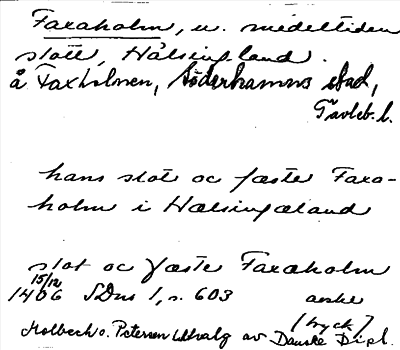 Faxaholm, u. medeltiden
slott, Hälsingland.
å Faxholmen, Söderhamns stad,
Gävleb. l.
hans slot oc fæste Faxa-
holm i Hælsingæland
slot oc fæste Faxaholm
15/12
1406 SDns 1, s. 603 avskr
(tryck)
Molbech o. Petersen Utvalg av Danske Dipl.